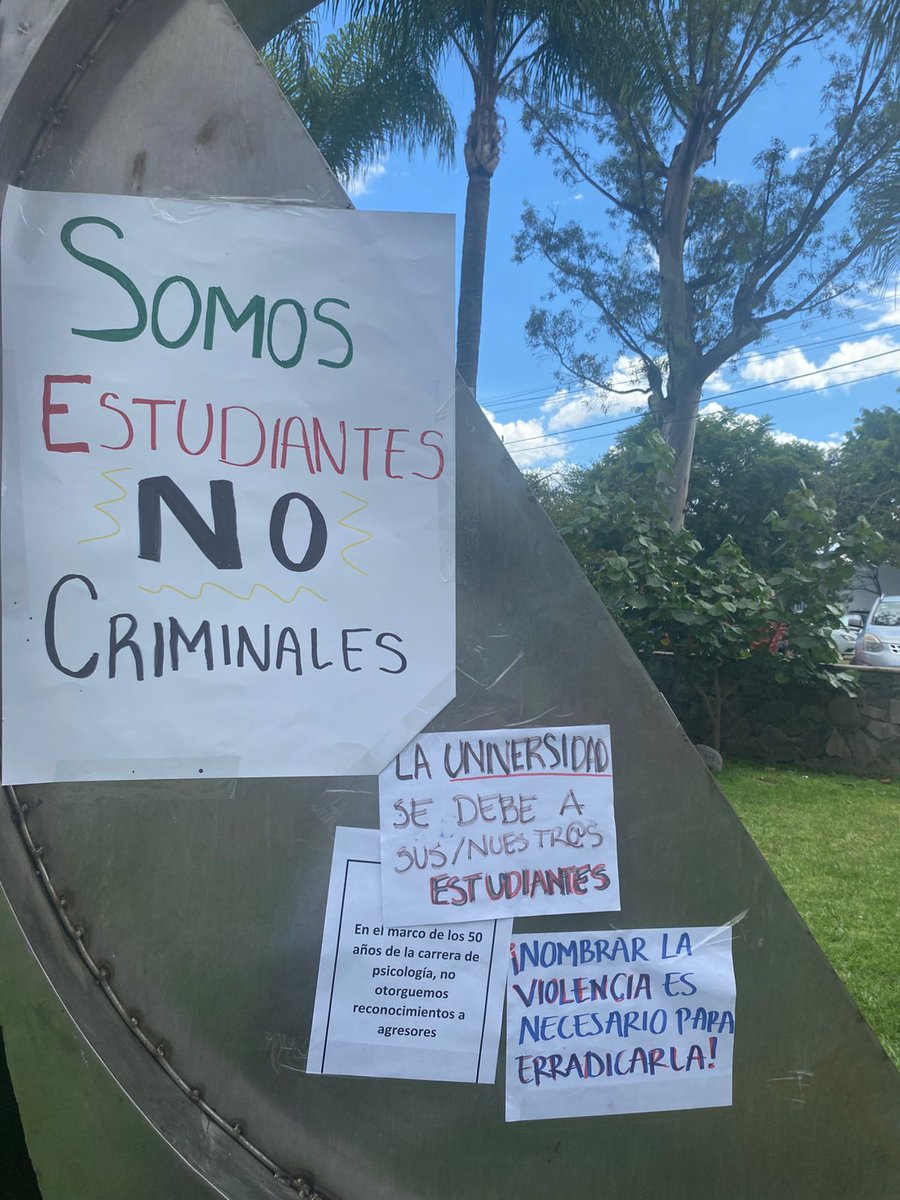 SOMOS
ESTUDIANTES
NO
CRIMINALES
LA UNIVERSIDAD
SE DEBE A
SUS/NUESTR@S
ESTUDIANTES
En el marco de los 50
años de la carrera de
psicología, no
otorguemos
reconocimientos a
agresores
¡NOMBRAR LA
VIOLENCIA ES
NECESARIO PARA
ERRADICARLA!